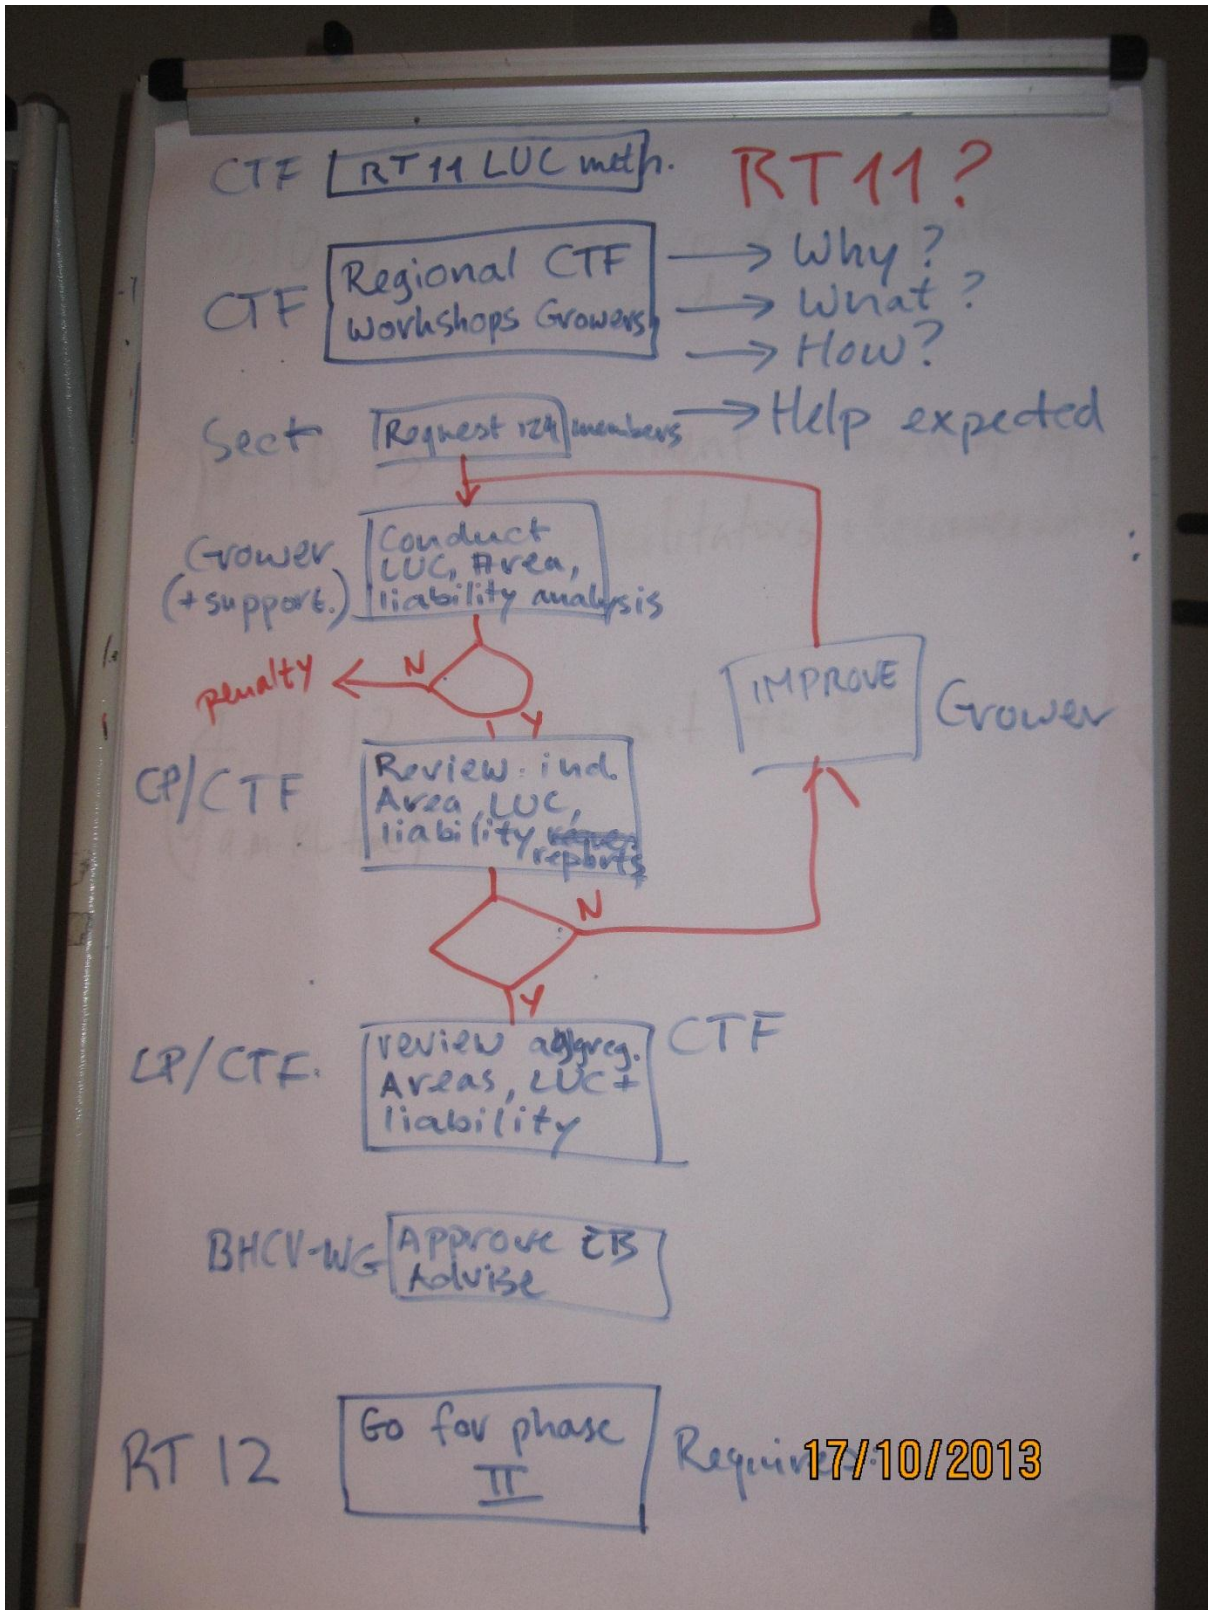 CTF RT 11 LUC meth. RT11?
CTF Regional CTF
Workshops Growers
→ Why?
→ What?
→ How?
Sect Request 124 members → Help expected
Grower
(+support.)
Conduct
LUC, Area,
liability analysis
penalty
N
Y
IMPROVE
Grower
CP/CTF
Review ind.
Area, LUC,
liability
reports
N
Y
CP/CTF.
review aggreg.
Areas, LUC +
liability
CTF
BHCV-WG
Approve EB
Advise
RT 12
Go for phase
II
17/10/2013